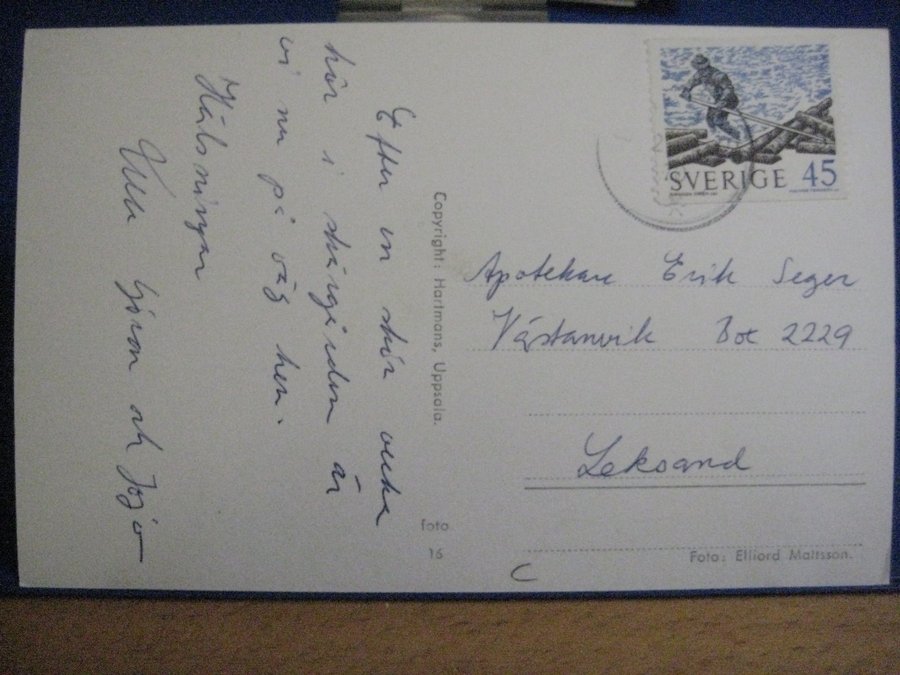 Efter en skör vecka
här i skärgården är
vi nu på väg hem.
Hälsningar
Ulla Göran och Jojo
Copyright: Hartmans, Uppsala.
foto
16
SVERIGE 45
Apotekare Erik Seger
Västanvik Box 2229
Leksand
Foto: Elliord Maltsson.